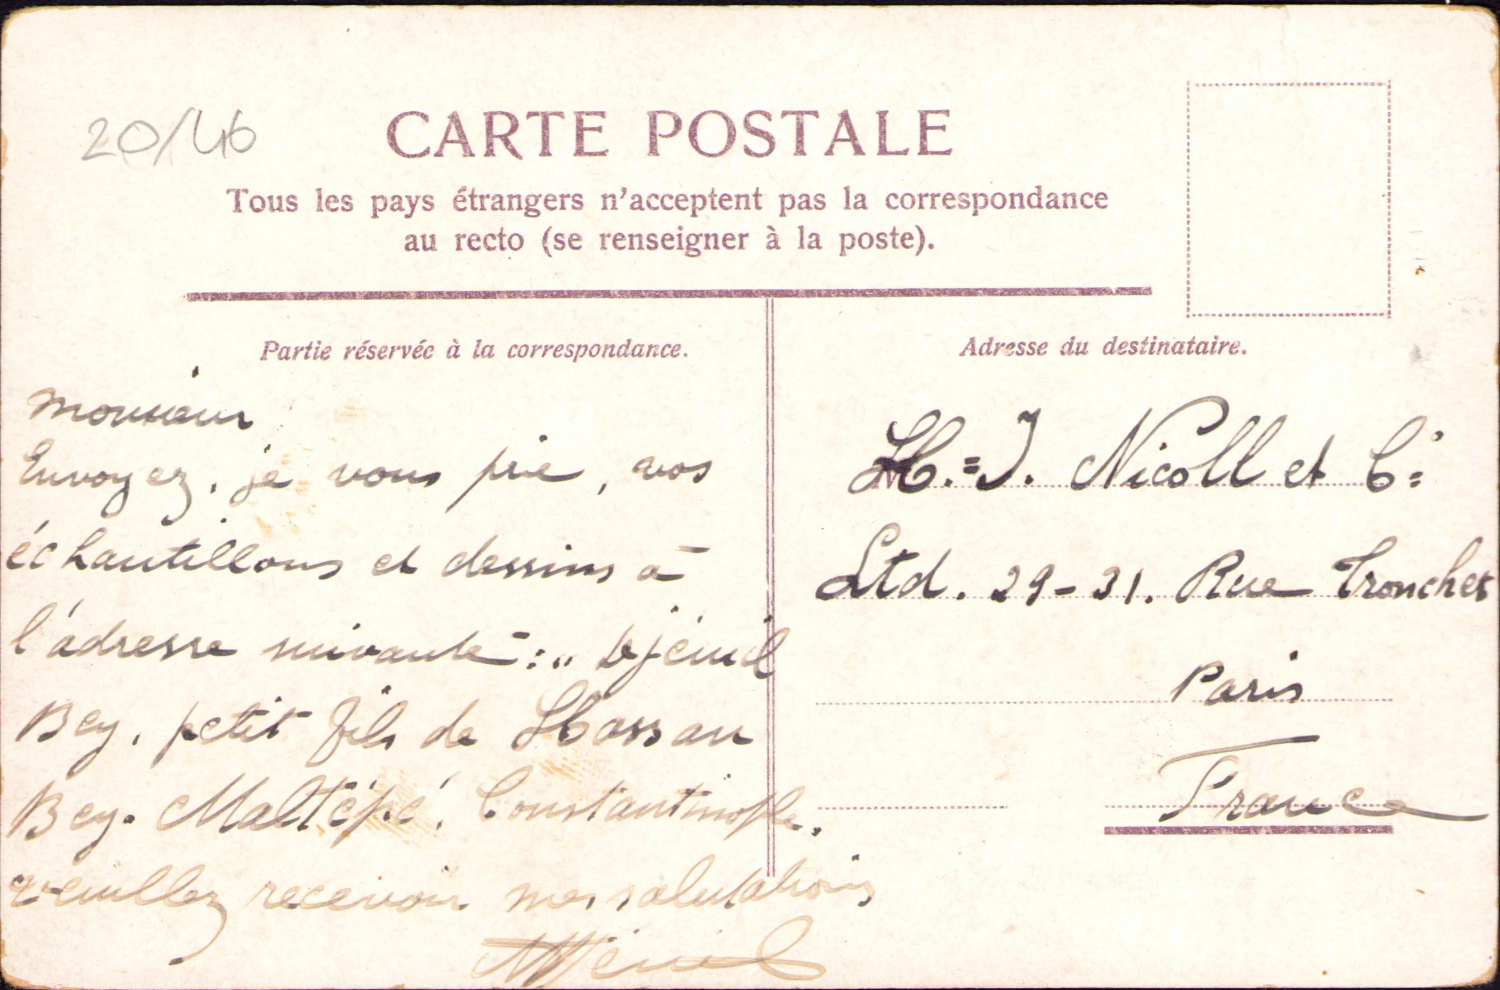 20/46
CARTE POSTALE
Tous les pays étrangers n'acceptent pas la correspondance
au recto (se renseigner à la poste).
Partie réservée à la correspondance.
Monsieur
Envoyez, je vous prie, vos
échantillons et dessins à
l'adresse suivante : „ Djémil
Bey, petit fils de Hassan
Bey. Maltépé, Constantinople.
Veuillez recevoir mes salutations
MDjémil
Adresse du destinataire.
H.=J. Nicoll et C:
Ltd. 29-31. Rue Tronchet
Paris
France